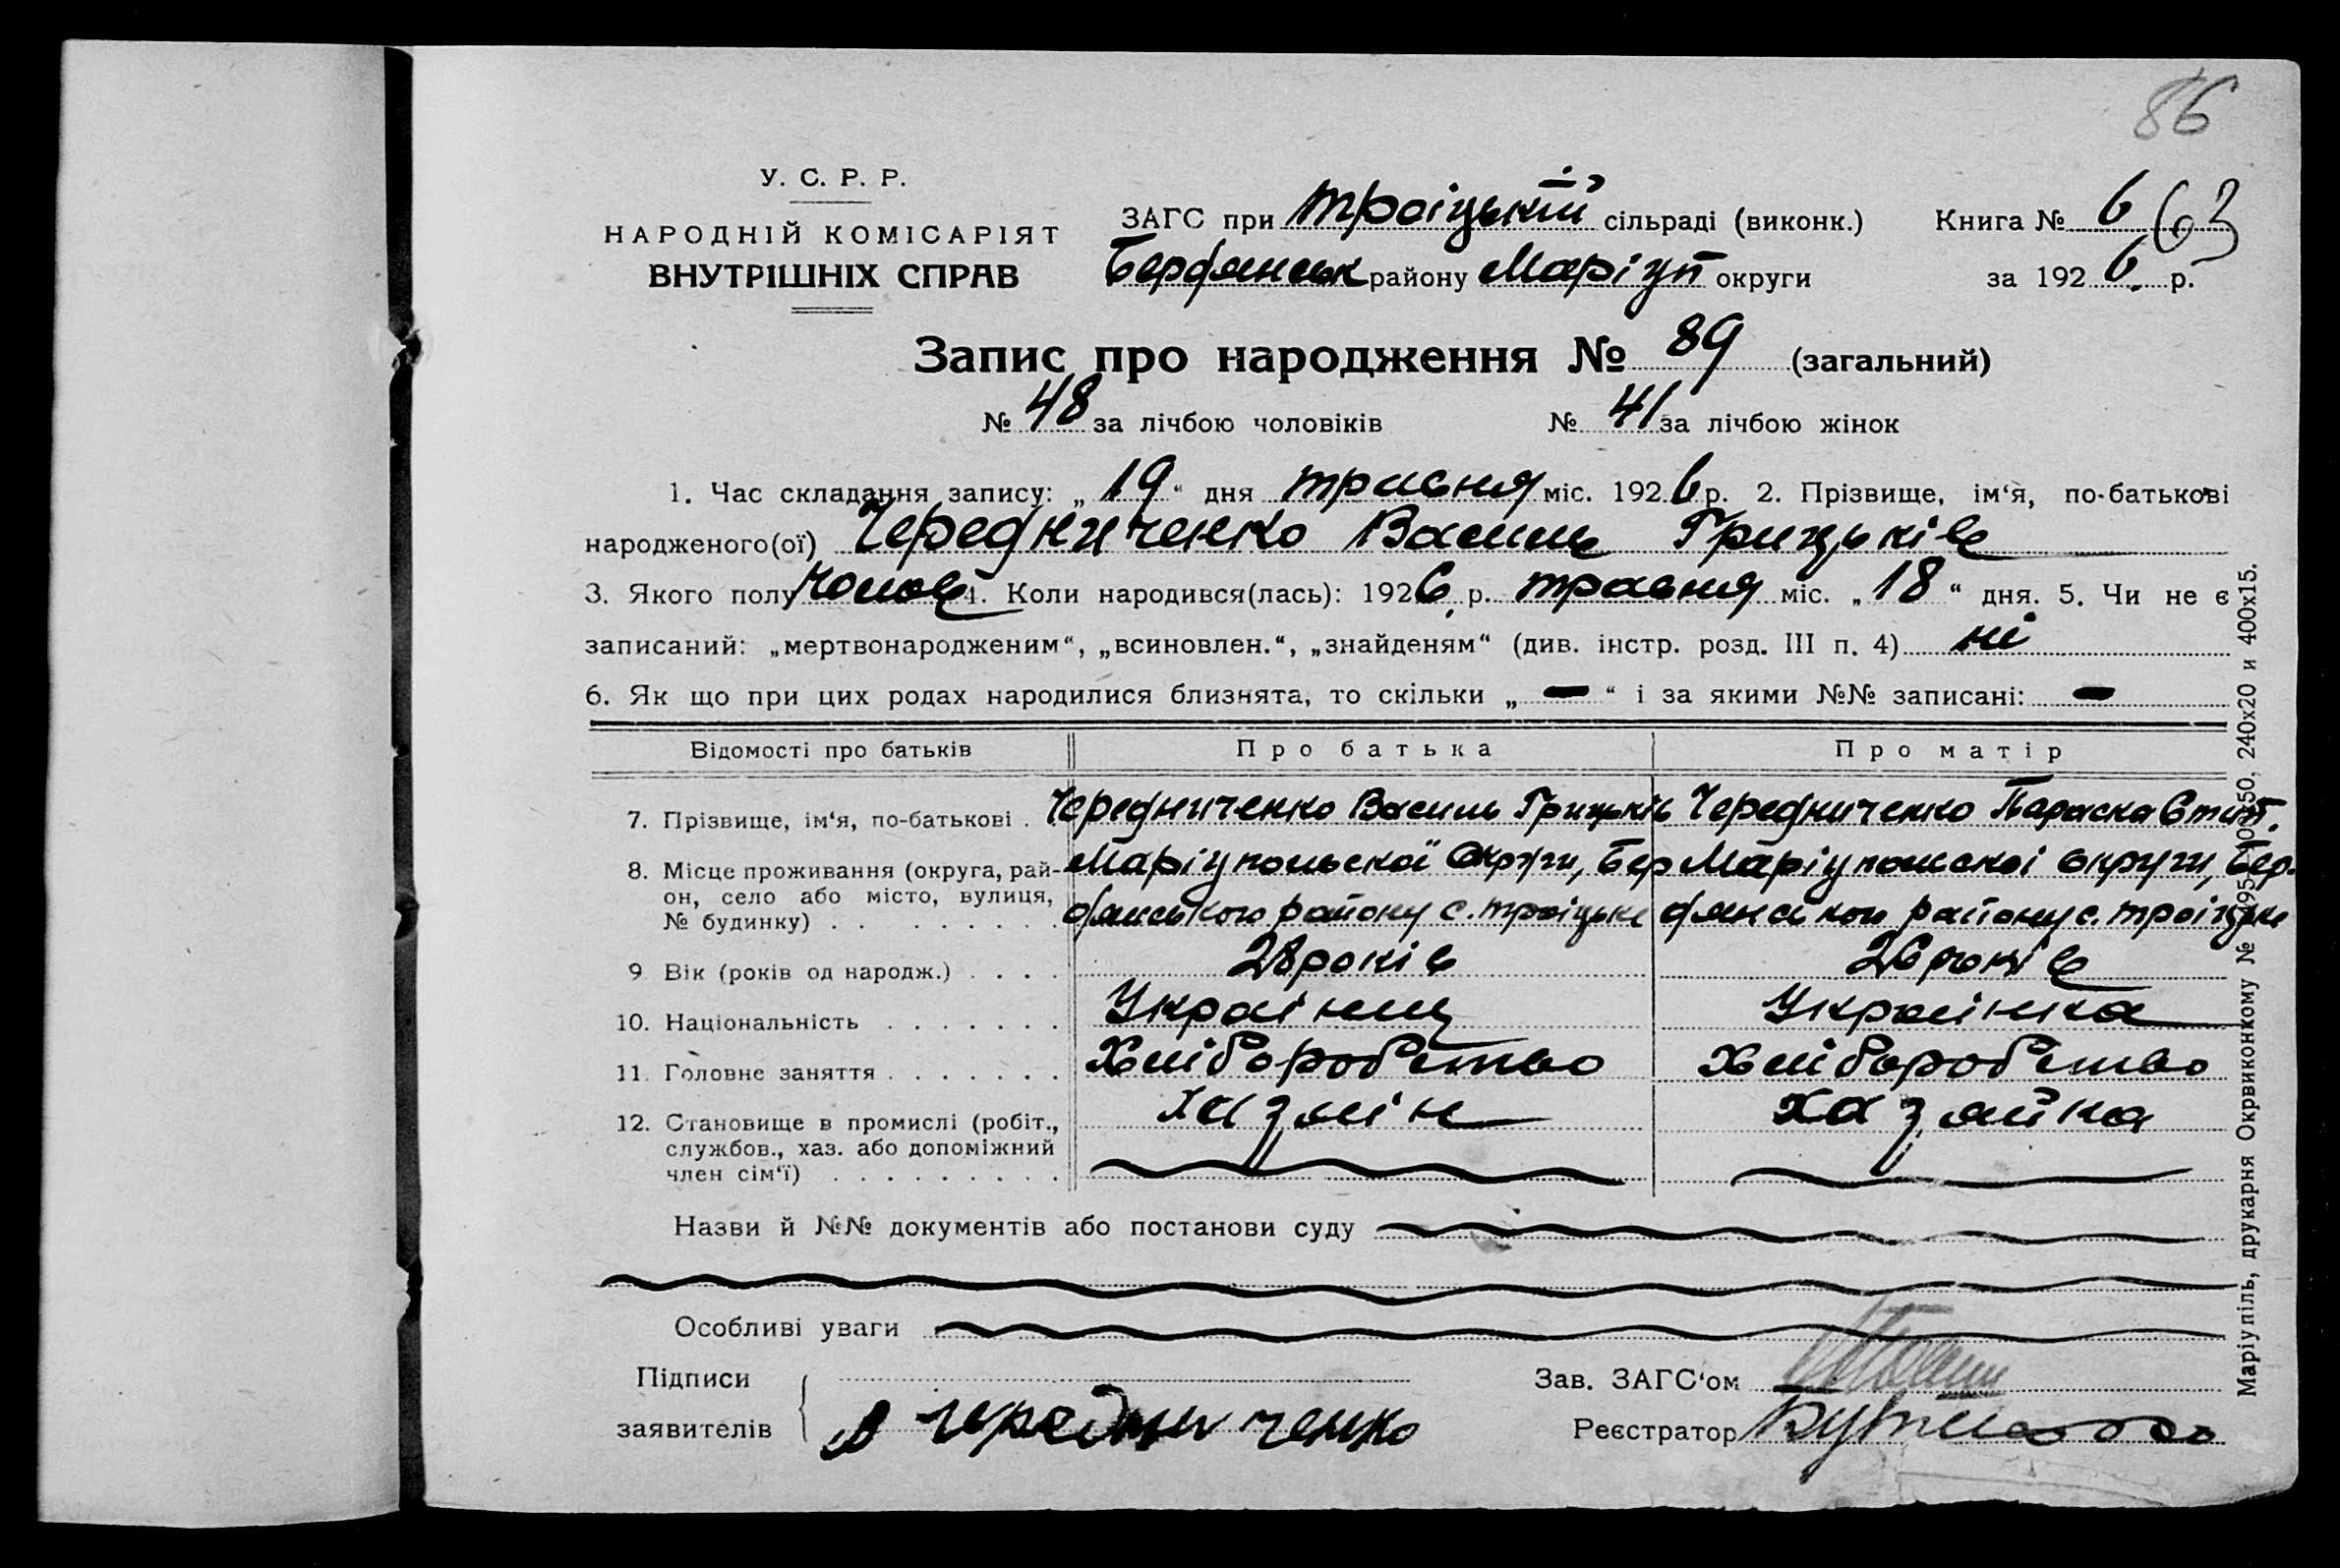 86
У. С. Р. Р.
НАРОДНІЙ КОМІСАРІЯТ
ВНУТРІШНІХ СПРАВ
ЗАГС при троіцькій сільраді (виконк.) Книга № 6 63
Бердянськ району Маріуп округи за 1926 р.
Запис про народження № 89 (загальний)
№ 48 за лічбою чоловіків № 41 за лічбою жінок
1. Час складання запису: „ 19 “ дня травня міс. 1926 р. 2. Прізвище, ім‘я, по-батькові
народженого(ої) Чередниченко Василь Грицьків
3. Якого полу чолов 4. Коли народився(лась): 1926 р. травня міс. „ 18 “ дня. 5. Чи не є
записаний: „мертвонародженим“, „всиновлен.“, „знайденям“ (див. інстр. розд. III п. 4) ні
6. Як що при цих родах народилися близнята, то скільки „ — “ і за якими №№ записані: —
Відомості про батьків Про батька Про матір
7. Прізвище, ім‘я, по-батькові . Чередниченко Василь Грицьків Чередниченко Параска
8. Місце проживання (округа, рай- Маріупольскої Округи, Бер Маріупольскоі округи, Бер-
он, село або місто, вулиця,
№ будинку) . . дянського району с. троіцьке дянсько району с. троіцьке
9 Вік (років од народж.) . . . . 28 років 26 років
10. Національність . . . . . . . Украінець Украінка
11. Головне заняття . . . . . . . Хліборобство Хліборобство
12. Становище в промислі (робіт., хазяін хазяйка
службов., хаз. або допоміжний
член сім‘ї) . . . . . . . . .
Назви й №№ документів або постанови суду
Особливі уваги
Підписи
заявителів Чередниченко
Зав. ЗАГС‘ом
Реєстратор
Маріупіль, друкарня Окрвиконкому № 240х20 и 400х15.